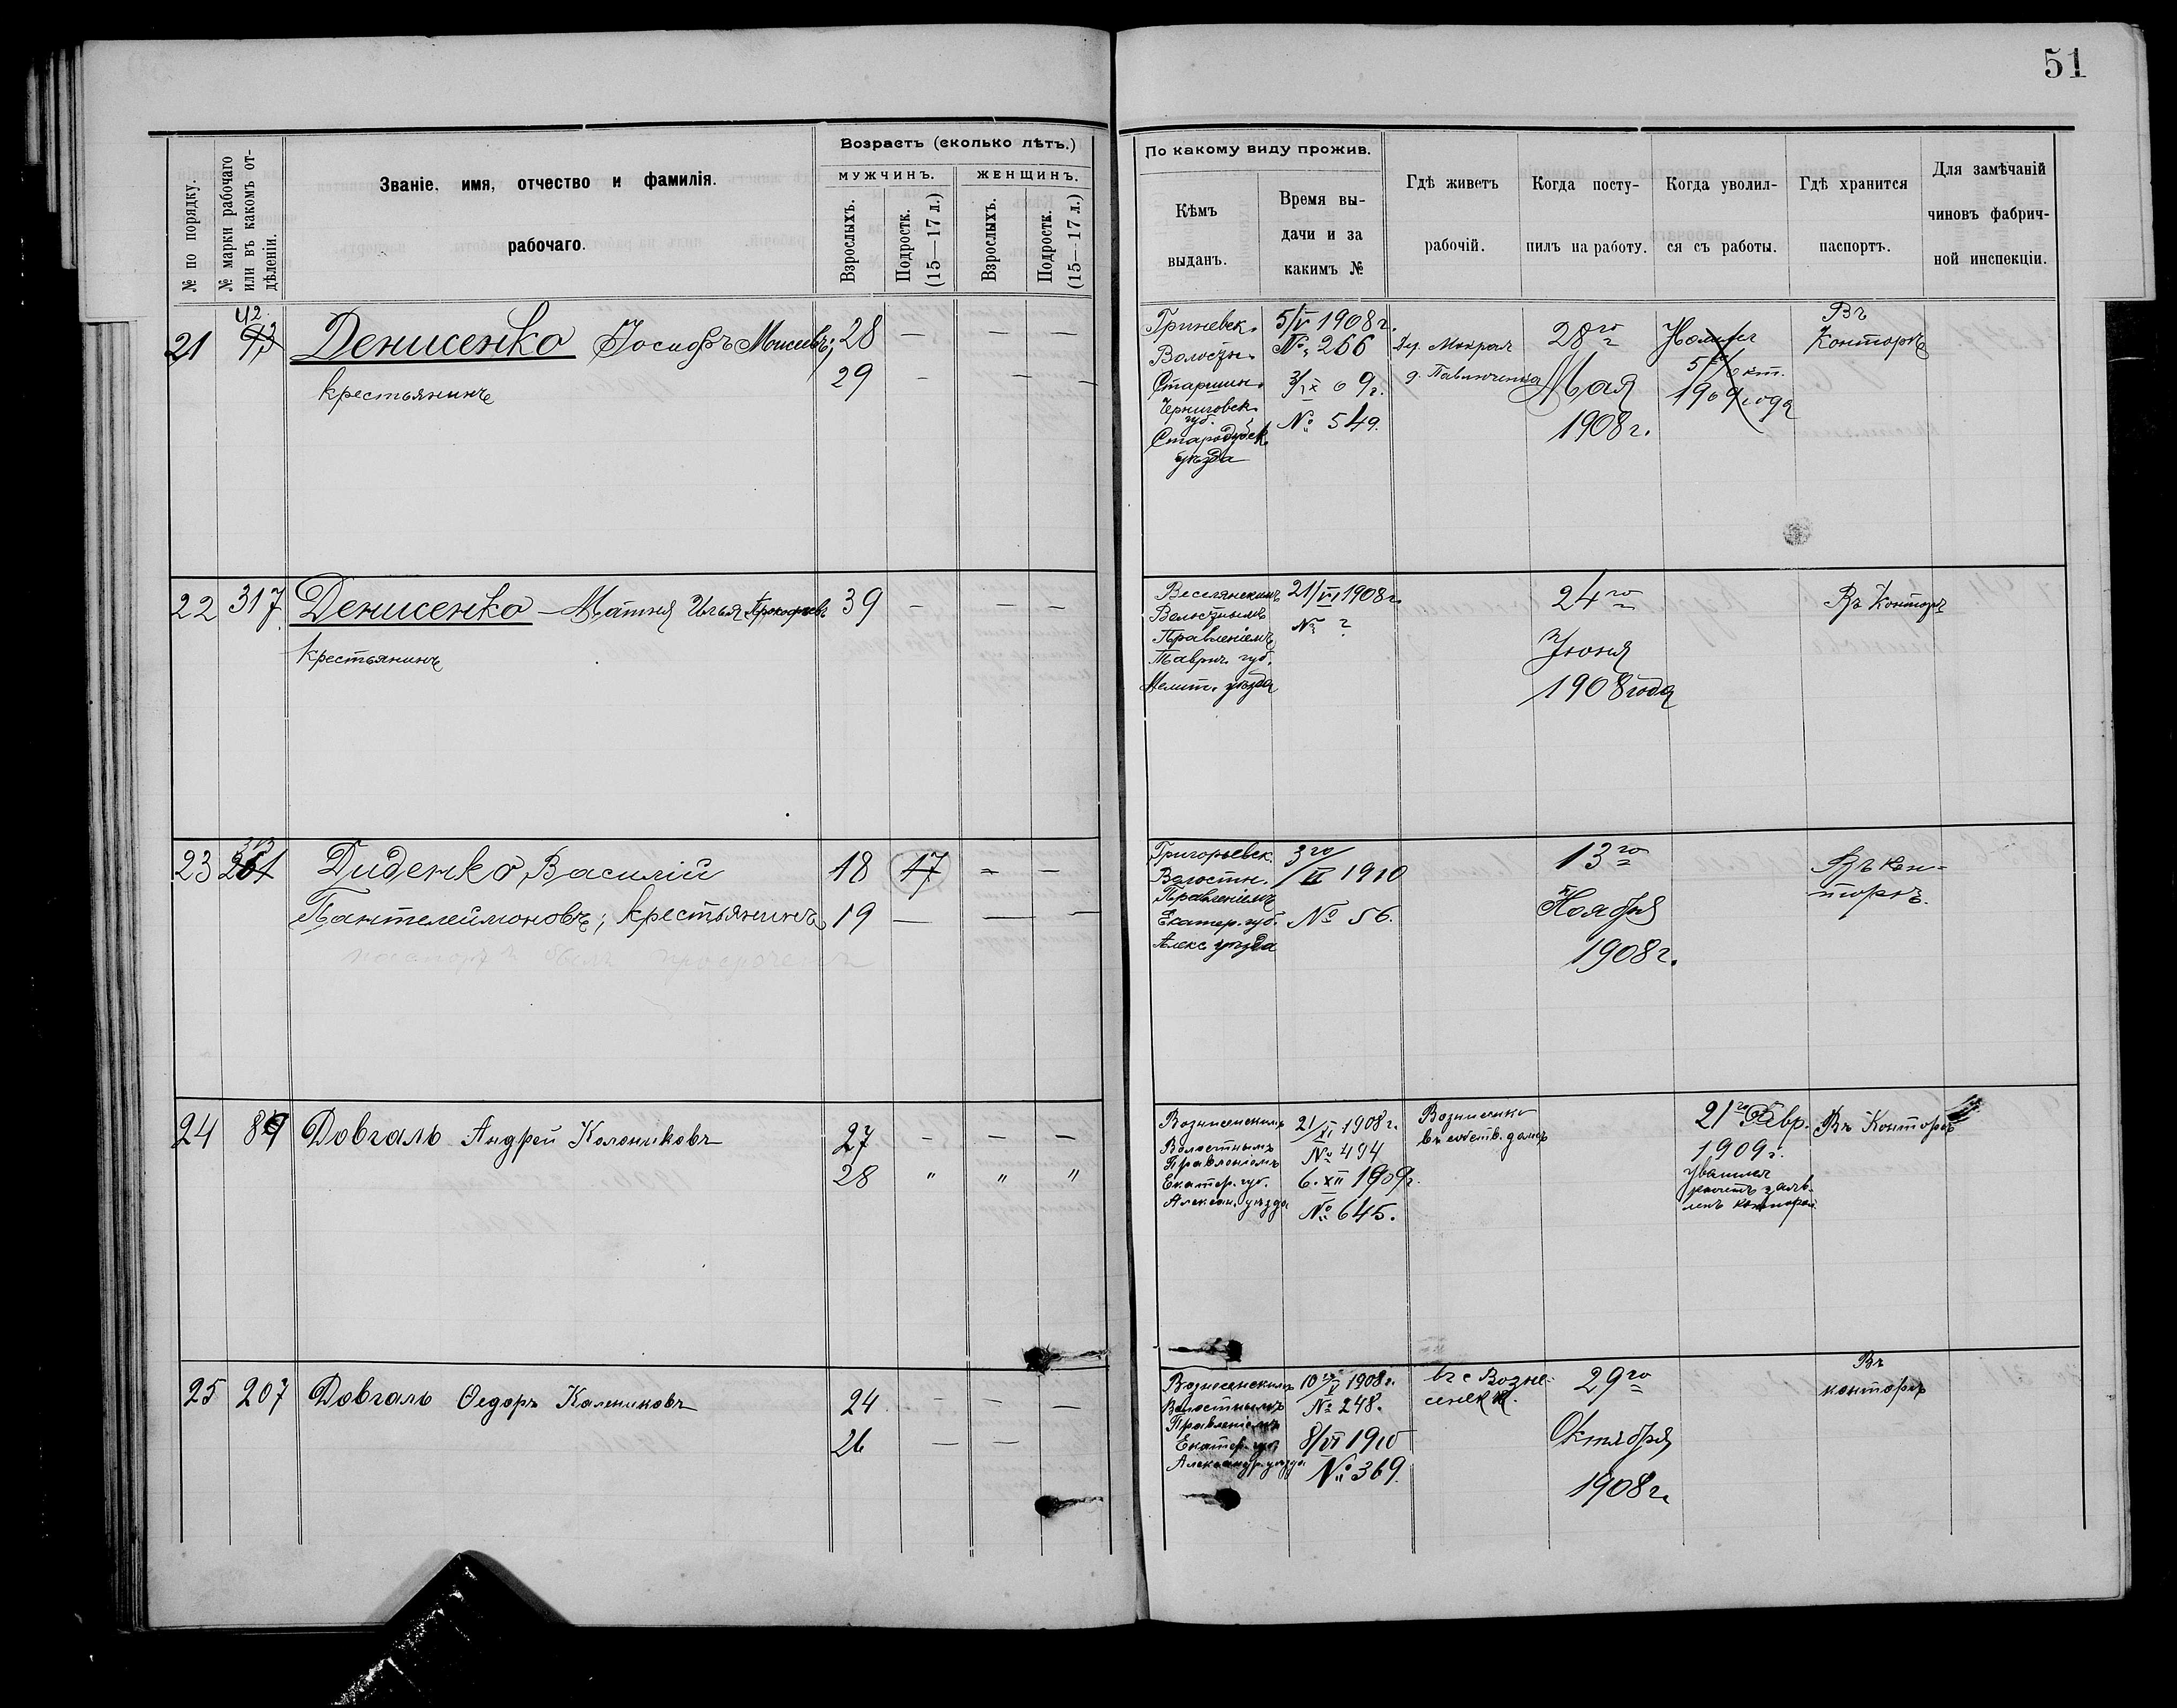 51
Возрастъ (сколько лѣтъ.)
МУЖЧИНЪ.
ЖЕНЩИНЪ.
№ по порядку.
№ марки рабочаго
или въ какомъ от-
дѣленіи.
Званіе, имя, отчество и фамилія.
рабочаго.
Взрослыхъ.
Подростк.
(15—17 л.)
Взрослыхъ.
Подростк.
(15—17 л.)
По какому виду прожив.
Кѣмъ
выданъ.
Время вы-
дачи и за
какимъ №
Гдѣ живетъ
рабочій.
Когда посту-
пилъ на работу.
Когда уволил-
ся съ работы.
Гдѣ хранится
паспортъ.
Для замѣчаній
чиновъ фабрич-
ной инспекціи.
21
42
43
Денисенко Іосифъ Моисеевъ;
крестьянинъ
28 — — —
29 - — —
Гриневск.
Волостн.
Старшин.
Черниговск.
губ.
Стародубск.
уѣзда
5/V 1908 г.
№ 266
3/IX 09 г.
№ 549.
Дер. Мокрая
28го
Мая
1908 г.
5го Окт.
1909 года
Въ
Конторѣ
22
317
Денисенко - Матня Илья Прокофьевъ
крестьянинъ
39 - — —
Веселянскимъ
Волостнымъ
Правленіемъ
Таврич. губ.
Мелит. уѣзда
21/VI 1908 г.
№ ?
24го
Іюня
1908 года
Въ Конторѣ
23
313
261
Диденко, Василій
Пантелеймоновъ; крестьянинъ
паспортъ былъ просроченъ
18 17 - —
19 — — —
Григорьевск.
Волостн.
Правленіемъ
Екатер. губ.
Алекс уѣзда
3го/II 1910
№ 56.
13го
Ноября
1908 г.
Въ кон-
торѣ.
24
89
Довгаль Андрей Калениковъ
27 - — —
28 " " "
Вознесенскимъ
Волостнымъ
Правленіемъ
Екатер. губ.
Алексан. уѣзда
21/XI 1908 г.
№ 494
6. XII 1909 г.
№ 645.
въ собств. домѣ
21го Февр.
1909 г.
Въ Конторѣ
25
207
Довгаль Ѳедоръ Калениковъ
24 - — —
26 — —
Вознесенскимъ
Волостнымъ
Правленіемъ
Екатер. губ.
Александр. уѣзда
10го/V 1908 г.
№ 248.
8/VI 1910
№ 369.
въ с Возне-
сенск.
29го
Октября
1908 г.
Въ
конторѣ